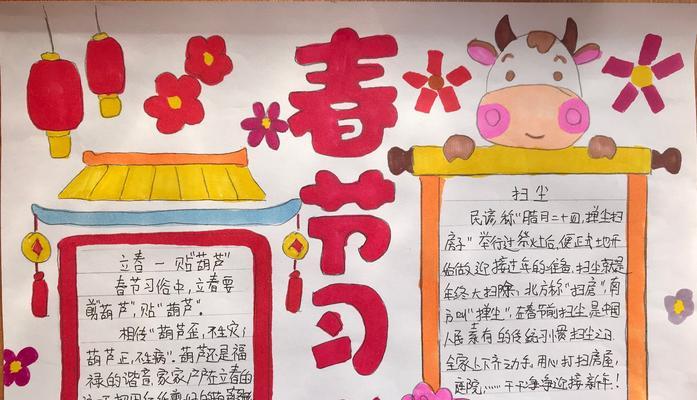 春节习
立春一贴"葫芦"
春节习俗中,立春要
剪"葫芦",贴"葫芦"。
相传"葫芦歪,不生灾;
葫芦正,不生病"。葫芦还是福
禄的谐音,家家户户在立春的
扫尘
民谚称"腊月二十四,掸尘扫
房子"举行过祭灶后,便正式地开
始做迎接过年的准备。扫尘就是
年终大扫除,北方称"扫房",南
方叫"掸尘"。在春节前扫尘,是中国
人民素有的传统习惯扫尘之日
全家上下齐动手,用心打扫房屋,
庭院,……干干净净迎接新年!